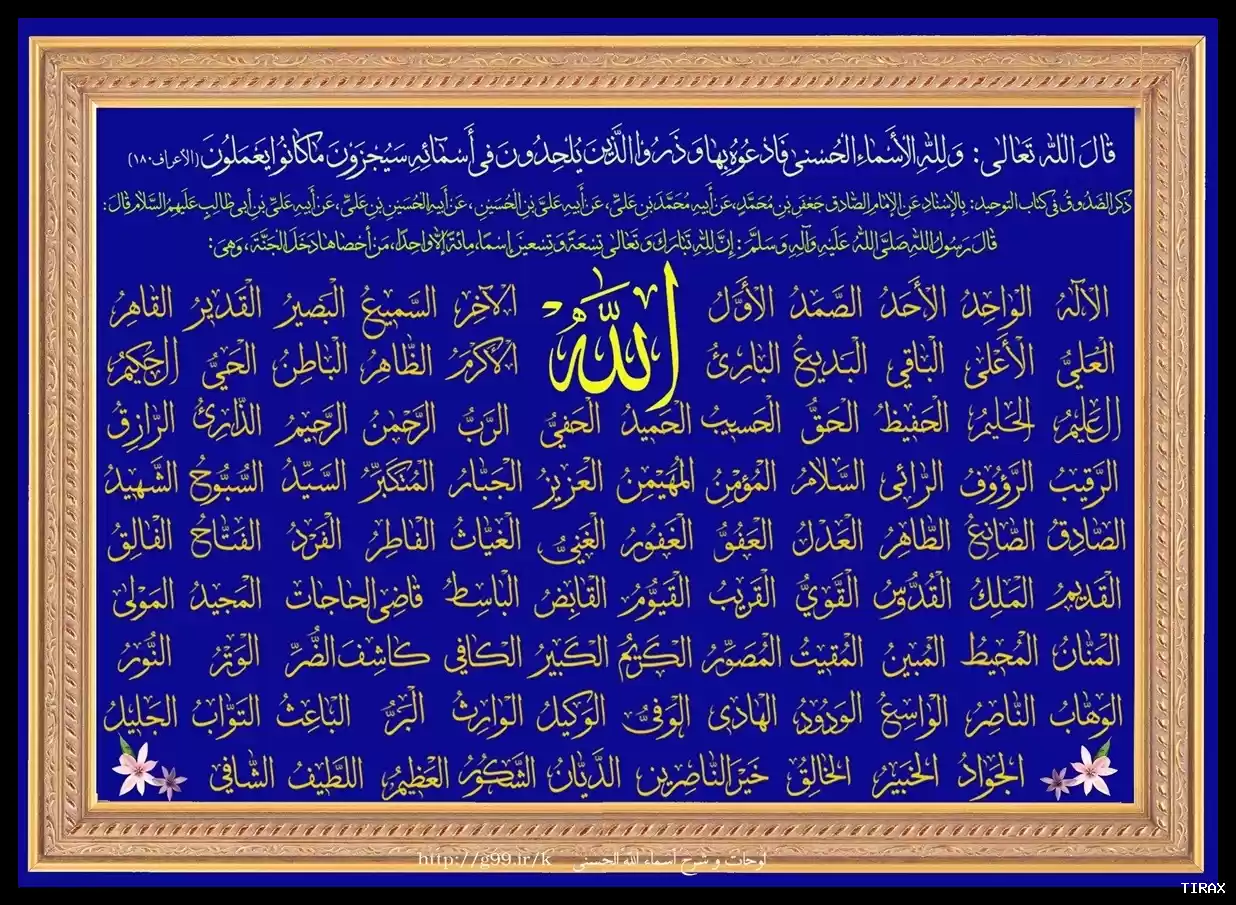 قَالَ اللّٰهُ تَعَالَى: وَلِلّٰهِ الْأَسْمَاءُ الْحُسْنَى فَادْعُوهُ بِهَا وَ ذَرُوا الَّذِينَ يُلْحِدُونَ فِي أَسْمَائِهِ سَيُجْزَوْنَ مَا كَانُوا يَعْمَلُونَ (الأعراف ۱۸۰)
ذكر الصَّدُوقُ فِي كتاب التوحيد: بِالْإِسْنَادِ عَنِ الْإِمَامِ الصَّادِقِ جَعْفَرِ بْنِ مُحَمَّدٍ، عَنْ أَبِيهِ مُحَمَّدِ بْنِ عَلِيٍّ، عَنْ أَبِيهِ عَلِيِّ بْنِ الْحُسَيْنِ، عَنْ أَبِيهِ الْحُسَيْنِ بْنِ عَلِيٍّ، عَنْ أَبِيهِ عَلِيِّ بْنِ أَبِي طَالِبٍ عَلَيْهِمُ السَّلَامُ قَالَ:
قَالَ رَسُولُ اللّٰهِ صَلَّى اللّٰهُ عَلَيْهِ وَآلِهِ وَسَلَّمَ: إِنَّ لِلّٰهِ تَبَارَكَ وَ تَعَالَى تِسْعَةً وَ تِسْعِينَ إِسْمًا، مِائَةً إِلَّا وَاحِدًا، مَنْ أَحْصَاهَا دَخَلَ الْجَنَّةَ، وَهِيَ:
اللّٰهُ
الْإِلٰهُ الْوَاحِدُ الْأَحَدُ الصَّمَدُ الْأَوَّلُ الْآخِرُ السَّمِيعُ الْبَصِيرُ الْقَدِيرُ الْقَاهِرُ
الْعَلِيُّ الْأَعْلَى الْبَاقِي الْبَدِيعُ الْبَارِئُ الْأَكْرَمُ الظَّاهِرُ الْبَاطِنُ الْحَيُّ الْحَكِيمُ
الْعَلِيمُ الْحَلِيمُ الْحَفِيظُ الْحَقُّ الْحَسِيبُ الْحَمِيدُ الْحَفِيُّ الرَّبُّ الرَّحْمٰنُ الرَّحِيمُ الذَّارِئُ الرَّازِقُ
الرَّقِيبُ الرَّؤُوفُ الرَّائِي السَّلَامُ الْمُؤْمِنُ الْمُهَيْمِنُ الْعَزِيزُ الْجَبَّارُ الْمُتَكَبِّرُ السَّيِّدُ السُّبُّوحُ الشَّهِيدُ
الصَّادِقُ الصَّانِعُ الطَّاهِرُ الْعَدْلُ الْعَفُوُّ الْغَفُورُ الْغَنِيُّ الْغِيَاثُ الْفَاطِرُ الْفَرْدُ الْفَتَّاحُ الْفَالِقُ
الْقَدِيمُ الْمَلِكُ الْقُدُّوسُ الْقَوِيُّ الْقَرِيبُ الْقَيُّومُ الْقَابِضُ الْبَاسِطُ قَاضِي الْحَاجَاتِ الْمَجِيدُ الْمَوْلَى
الْمَنَّانُ الْمُحِيطُ الْمُبِينُ الْمُقِيتُ الْمُصَوِّرُ الْكَرِيمُ الْكَبِيرُ الْكَافِي كَاشِفُ الضُّرِّ الْوَتْرُ النُّورُ
الْوَهَّابُ النَّاصِرُ الْوَاسِعُ الْوَدُودُ الْهَادِي الْوَفِيُّ الْوَكِيلُ الْوَارِثُ الْبَرُّ الْبَاعِثُ التَّوَّابُ الْجَلِيلُ
الْجَوَادُ الْخَبِيرُ الْخَالِقُ خَيْرُ النَّاصِرِينَ الدَّيَّانُ الشَّكُورُ الْعَظِيمُ اللَّطِيفُ الشَّافِي
لوحات و شرح أسماء الله الحسنى http://g99.ir/k
TIRAX